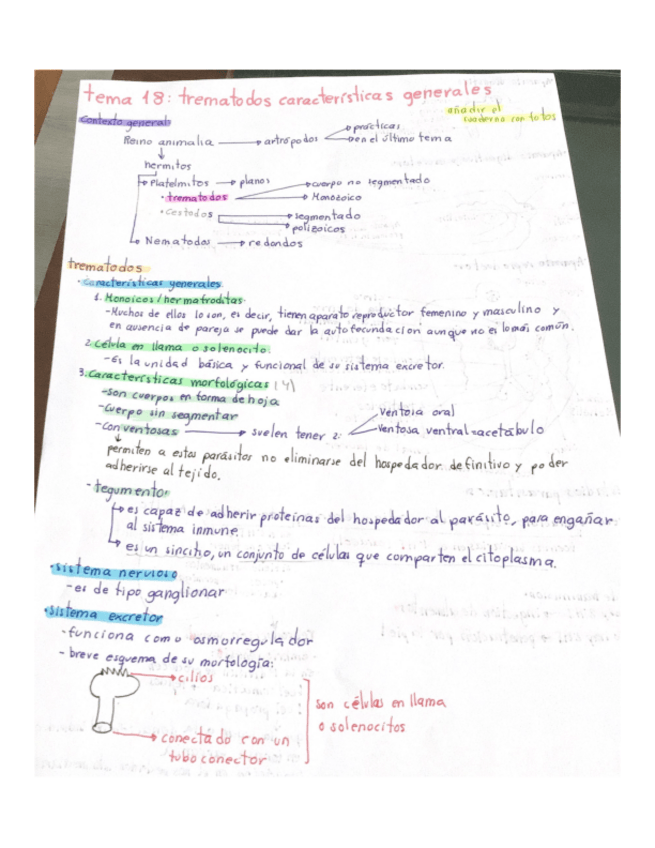 tema 18: trematodos características generales
añadir el
cuaderno con fotos
Contexto general
Reino animalia → artrópodos → prácticas
→ en el último tema
↓
hermitos
→ Platelmitos → planos
• trematodos → cuerpo no segmentado
→ Monozoico
• Cestodos → segmentado
→ polizoicos
→ Nematodos → redondos
trematodos
• características generales
1. Monoicos/hermafroditas.
-Muchos de ellos lo son, es decir, tienen aparato reproductor femenino y masculino y
en ausencia de pareja se puede dar la autofecundación aunque no es lo más común.
2. Célula en llama o solenocito:
-Es la unidad básica y funcional de su sistema excretor.
3. Características morfológicas (4)
-Son cuerpos en forma de hoja
-Cuerpo sin segmentar
-Con ventosas → suelen tener 2: ventosa oral
ventosa ventral=acetábulo
↓
permiten a estos parásitos no eliminarse del hospedador definitivo y poder
adherirse al tejido.
- tegumento
→ es capaz de adherir proteínas del hospedador al parásito, para engañar
al sistema inmune.
→ es un sincitio, un conjunto de células que comparten el citoplasma.
• sistema nervioso
-es de tipo ganglionar
• sistema excretor
-funciona como osmorregulador
- breve esquema de su morfología:
→ cilios
son células en llama
o solenocitos
→ conectado con un
tubo conector